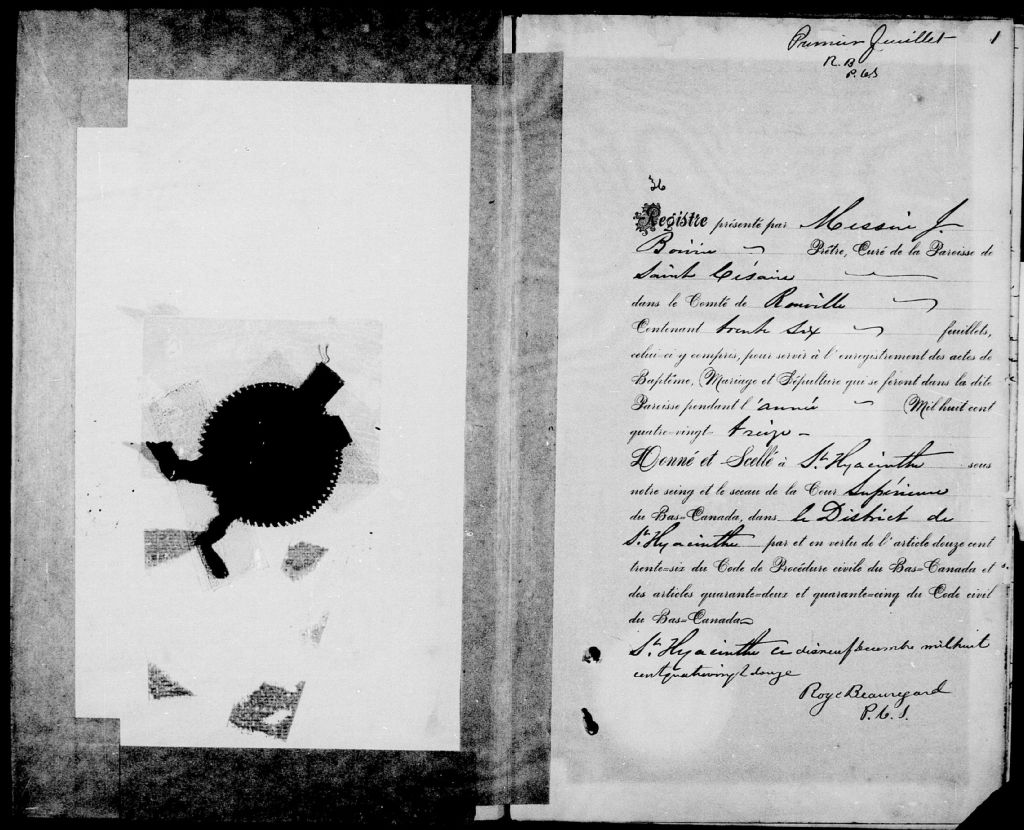 Premier feuillet 1
R. B
P.C.S
36
Registre présenté par Messire J.
Boivin Prêtre, Curé de la Paroisse de
Saint Césaire
dans le Comté de Rouville
Contenant trente six feuillets,
celui-ci y compris, pour servir à l'enregistrement des actes de
Baptême, Mariage et Sépulture qui se feront dans la dite
Paroisse pendant l'année Mil huit cent
quatre-vingt treize -
Donné et Scellé à St. Hyacinthe sous
notre seing et le sceau de la Cour Supérieure
du Bas=Canada, dans le District de
St. Hyacinthe par et en vertu de l'article douze cent
trente=six du Code de Procédure civile du Bas=Canada et
des articles quarante=deux et quarante=cinq du Code civil
du Bas=Canada
St. Hyacinthe ce dixneuf décembre mil huit
cent quatre vingt douze
Roy & Beauregard
P.C.S.